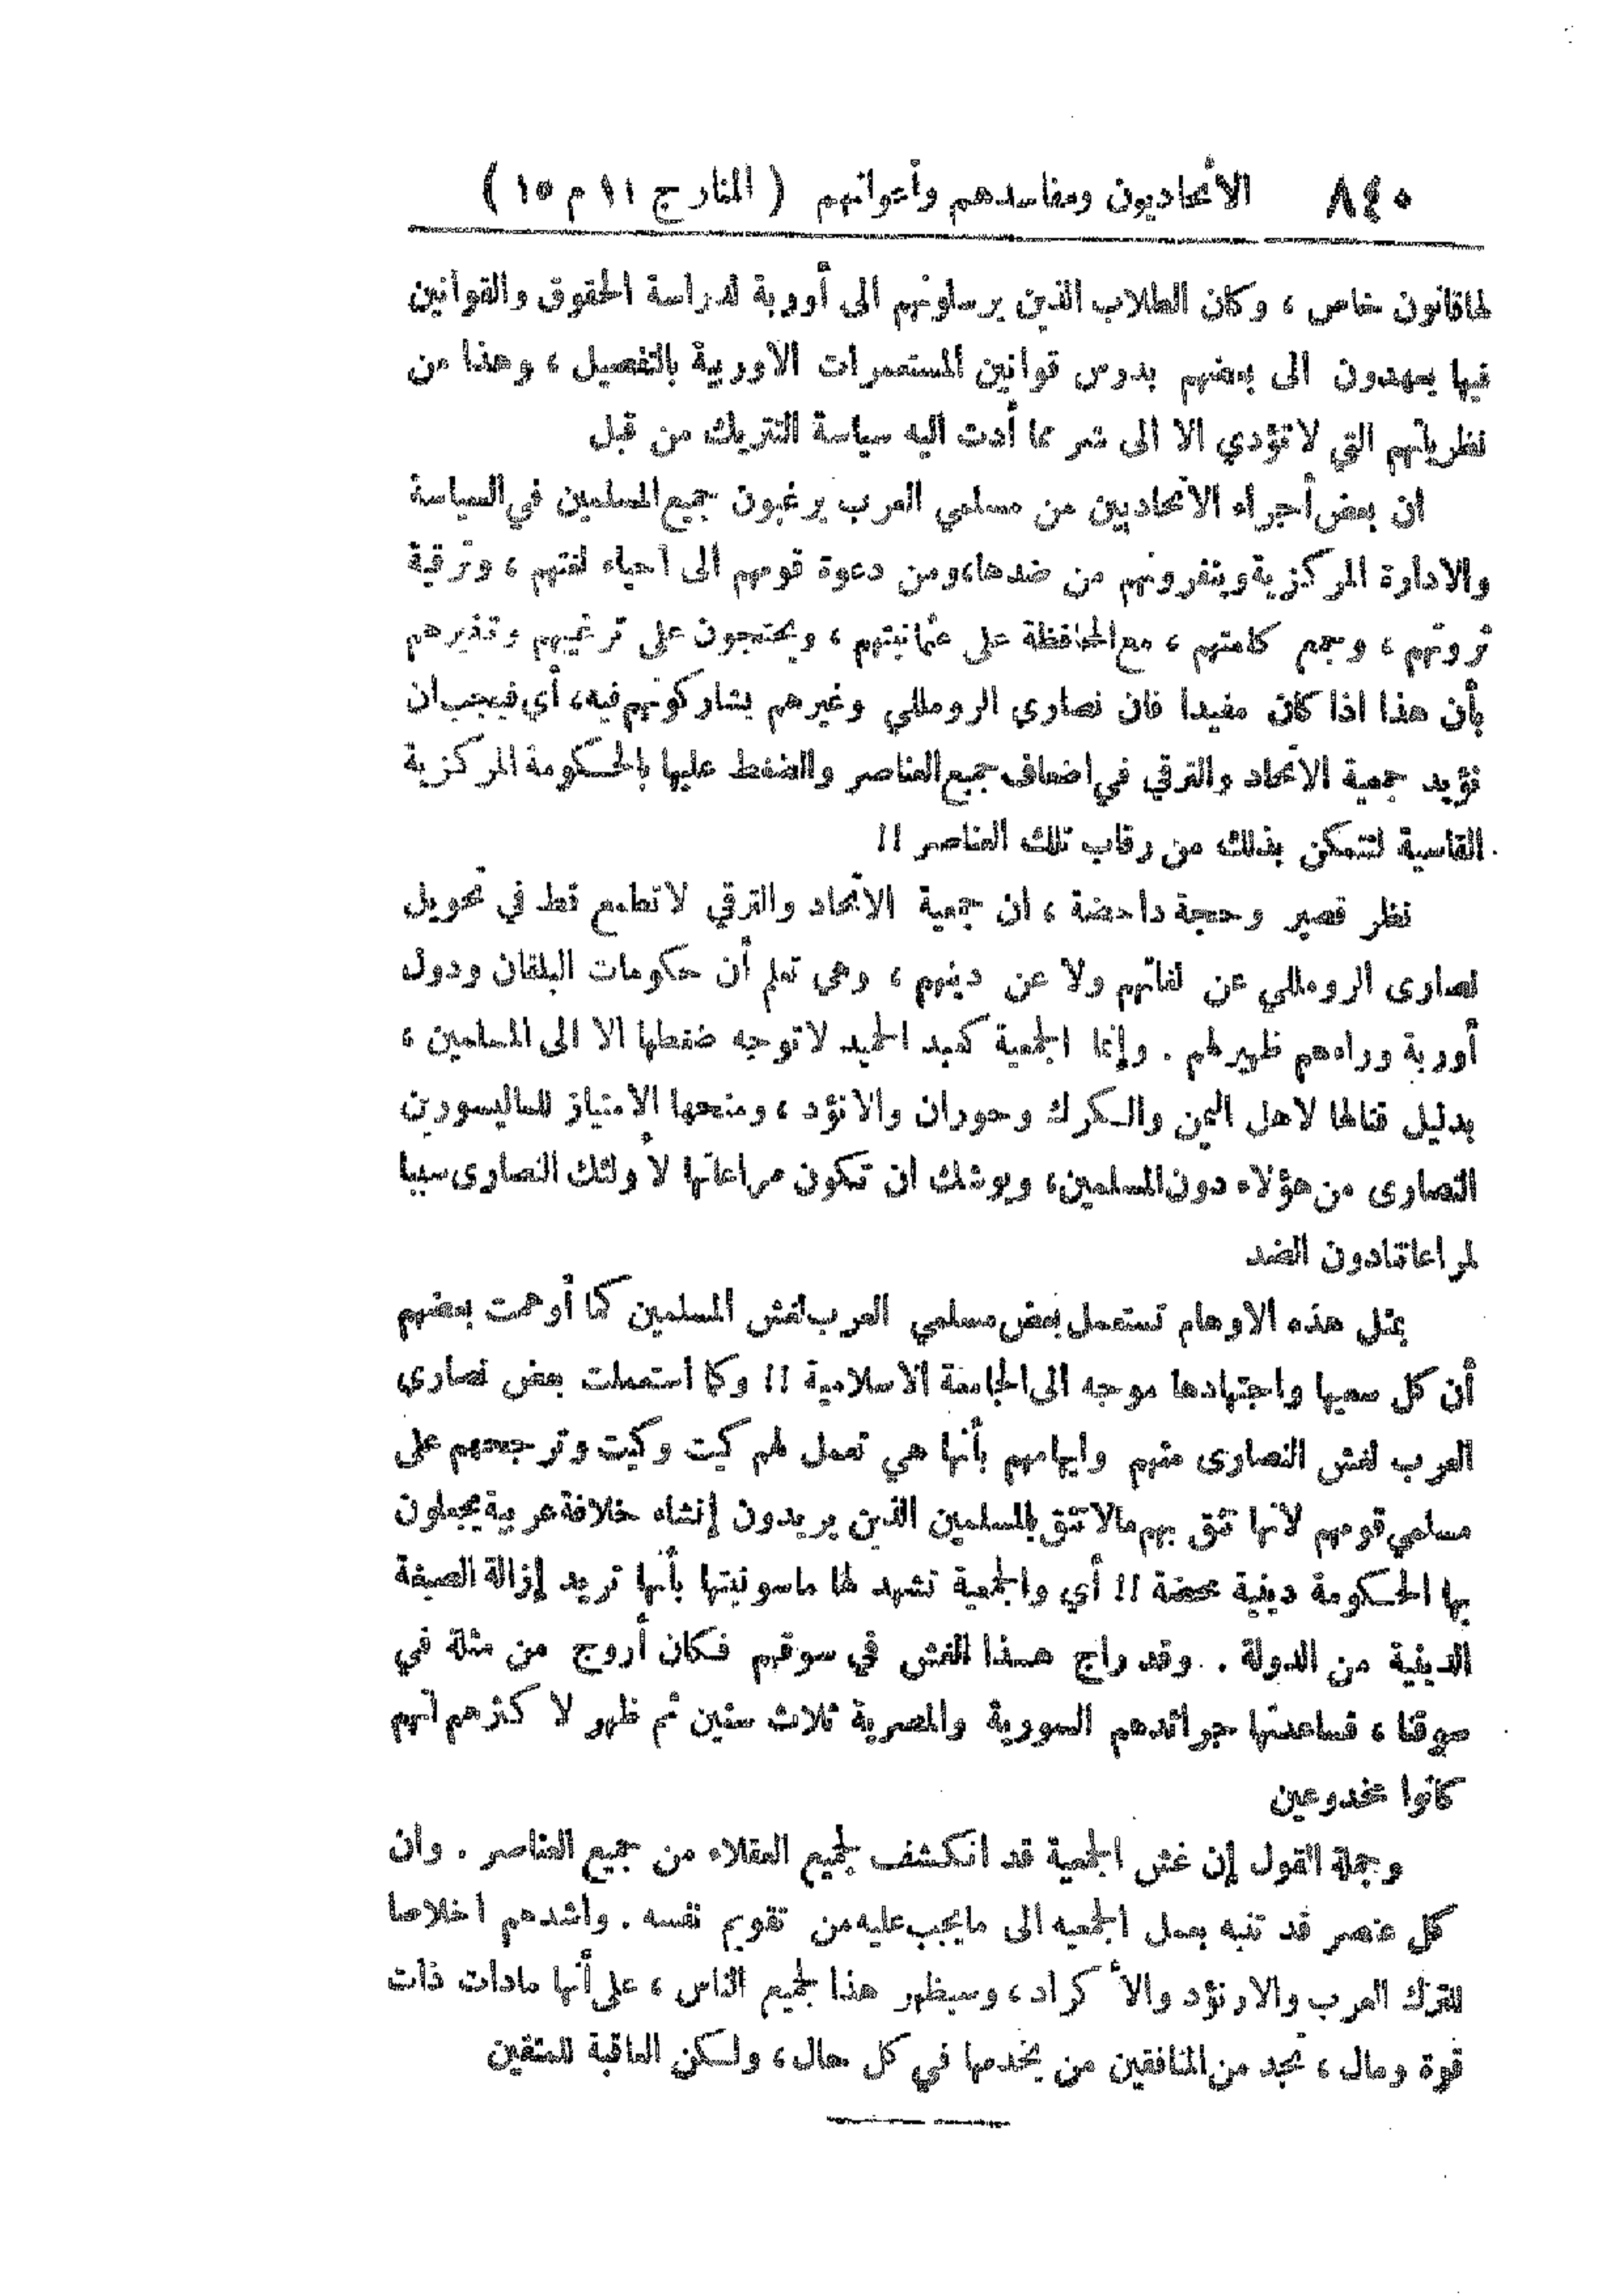 ٨٤٠ الاتحاديون ومفاسدهم وأعوانهم ( المنار ج ١١ م ١٥ )
لها قانون خاص ، وكان الطلاب الذين يرسلونهم الى أوربة لدراسة الحقوق والقوانين
فيها يعهدون الى بعضهم بدرس قوانين المستعمرات الاوربية بالتفصيل ، وهذا من
نظرياتهم التي لا تؤدي الا الى شر مما أدت اليه سياسة التتريك من قبل
ان بعض أجراء الاتحاديين من مسلمي العرب يرغبون جميع المسلمين في السياسة
والادارة المركزية وينفرونهم من ضدها، ومن دعوة قومهم الى احياء لغتهم ، وترقية
ثروتهم ، وجمع كلمتهم ، مع المحافظة على عثمانيتهم ، ويحتجون على ترغيبهم وتنفيرهم
بأن هذا اذا كان مفيدا فان نصارى الرومللي وغيرهم يشاركونهم فيه، أي فيجب ان
نؤيد جمعية الاتحاد والترقي في اضعاف جميع العناصر والضغط عليها بالحكومة المركزية
القاسية لتتمكن بذلك من رقاب تلك العناصر !!
نظر قصير وحجة داحضة ، ان جمعية الاتحاد والترقي لا تطمع قط في تحويل
نصارى الرومللي عن لغاتهم ولا عن دينهم ، وهي تعلم أن حكومات البلقان ودول
أوربة وراءهم ظهير لهم . وإنما الجمعية كعبد الحميد لا توجه ضغطها الا الى المسلمين ،
بدليل قتالها لاهل اليمن والكرك وحوران والارنؤد ، ومنحها الامتياز للماليسورين
النصارى من هؤلاء دون المسلمين، ويوشك ان تكون مراعاتها لأولئك النصارى سببا
لمراعاتنا دون الضد
بمثل هذه الاوهام تستعمل بعض مسلمي العرب لغش المسلمين كما أوهمت بعضهم
أن كل سعيها واجتهادها موجه الى الجامعة الاسلامية !! وكما استعملت بعض نصارى
العرب لغش النصارى منهم وايهامهم بأنها هي تعمل لهم كيت وكيت وترجحهم على
مسلمي قومهم لأنها تثق بهم مالا تثق بالمسلمين الذين يريدون إنشاء خلافة عربية يجعلون
بها الحكومة دينية محضة !! أي والجمعية تشهد لها ماسونيتها بأنها تريد إزالة الصبغة
الدينية من الدولة . وقد راج هذا الغش في سوقهم فكان أروج من مثله في
سوقنا ، فساعدتها جرائدهم السورية والمصرية ثلاث سنين ثم ظهر لأكثرهم انهم
كانوا مخدوعين
وجملة القول إن غش الجمعية قد انكشف لجميع العقلاء من جميع العناصر . وان
كل عنصر قد تنبه بعمل الجمعيه الى ما يجب عليه من تقويم نفسه . واشدهم اخلاصا
للترك العرب والارنؤد والأكراد ، وسيظهر هذا لجميع الناس ، على أنها مادات ذات
قوة ومال ، تجد من المنافقين من يخدمها في كل حال ، ولكن العاقبة للمتقين